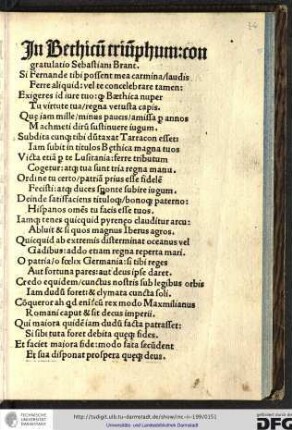 In Bethicū triūphum: con
gratulatio Sebastiani Brant.
Si Fernande tibi possent mea carmina/laudis
Ferre aliquid: vel te concelebrare tamen:
Exigeres id iure tuo: q̃ Bæthica nuper
Tu virtute tua/regna vetusta capis.
Que iam mille/minus paucis/amissa p annos
Machmeti dirũ sustinuere iugum.
Subdita cunq̃ tibi dũtaxat Tarracon esset:
Iam subit in titulos Bęthica magna tuos
Victa etiã p te Lusitania: ferre tributum
Cogetur: atq̃ tua sunt tria regna manu.
Ordine tu certo/patriã prius esse fidelē
Fecisti: atq̃ duces sponte subire iugum.
Deinde satisfaciens tituloq̃/bonoq̃ paterno:
Hispanos omēs tu facis esse tuos.
Iamq̃ tenes quicquid pyrenęo clauditur arcu:
Abluit & si quos magnus Iberus agros.
Quicquid ab extremis disterminat oceanus vel
Gadibus: addo etiam regna reperta mari.
O patria/o fœlix Germania: si tibi reges
Aut fortuna pares: aut deus ipse daret.
Credo equidem/cunctus nostris sub legibus orbis
Iam dudū foret: & clymata cuncta soli.
Cōqueror ah q̃d eni: seu rex modo Maxmilianus
Romani caput & sit decus imperii.
Qui maiora quidē iam dudū facta patrasset:
Si sibi tuta foret debita queq̃ fides.
Et faciet maiora fide: modo fata secūdent
Et sua disponat prospera queq̃ deus.
http://tudigit.ulb.tu-darmstadt.de/show/inc-iv-199/0151
Universitäts- und Landesbibliothek Darmstadt
TECHNISCHE
UNIVERSITÄT
DARMSTADT
gefördert durch die
DFG